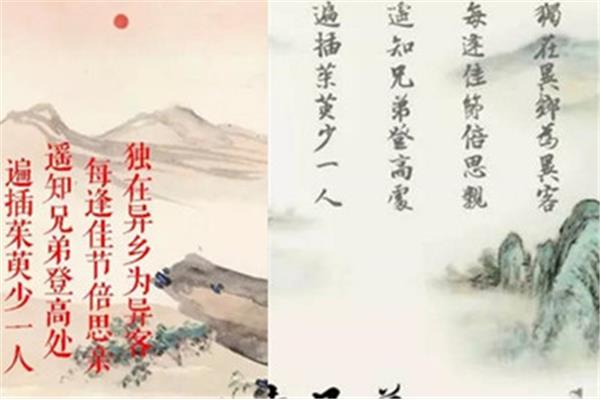 独在异乡为异客
每逢佳节倍思亲
遥知兄弟登高处
遍插茱萸少一人
獨在異鄉為異客
每逢佳節倍思親
遥知兄弟登高處
遍插茱萸少一人